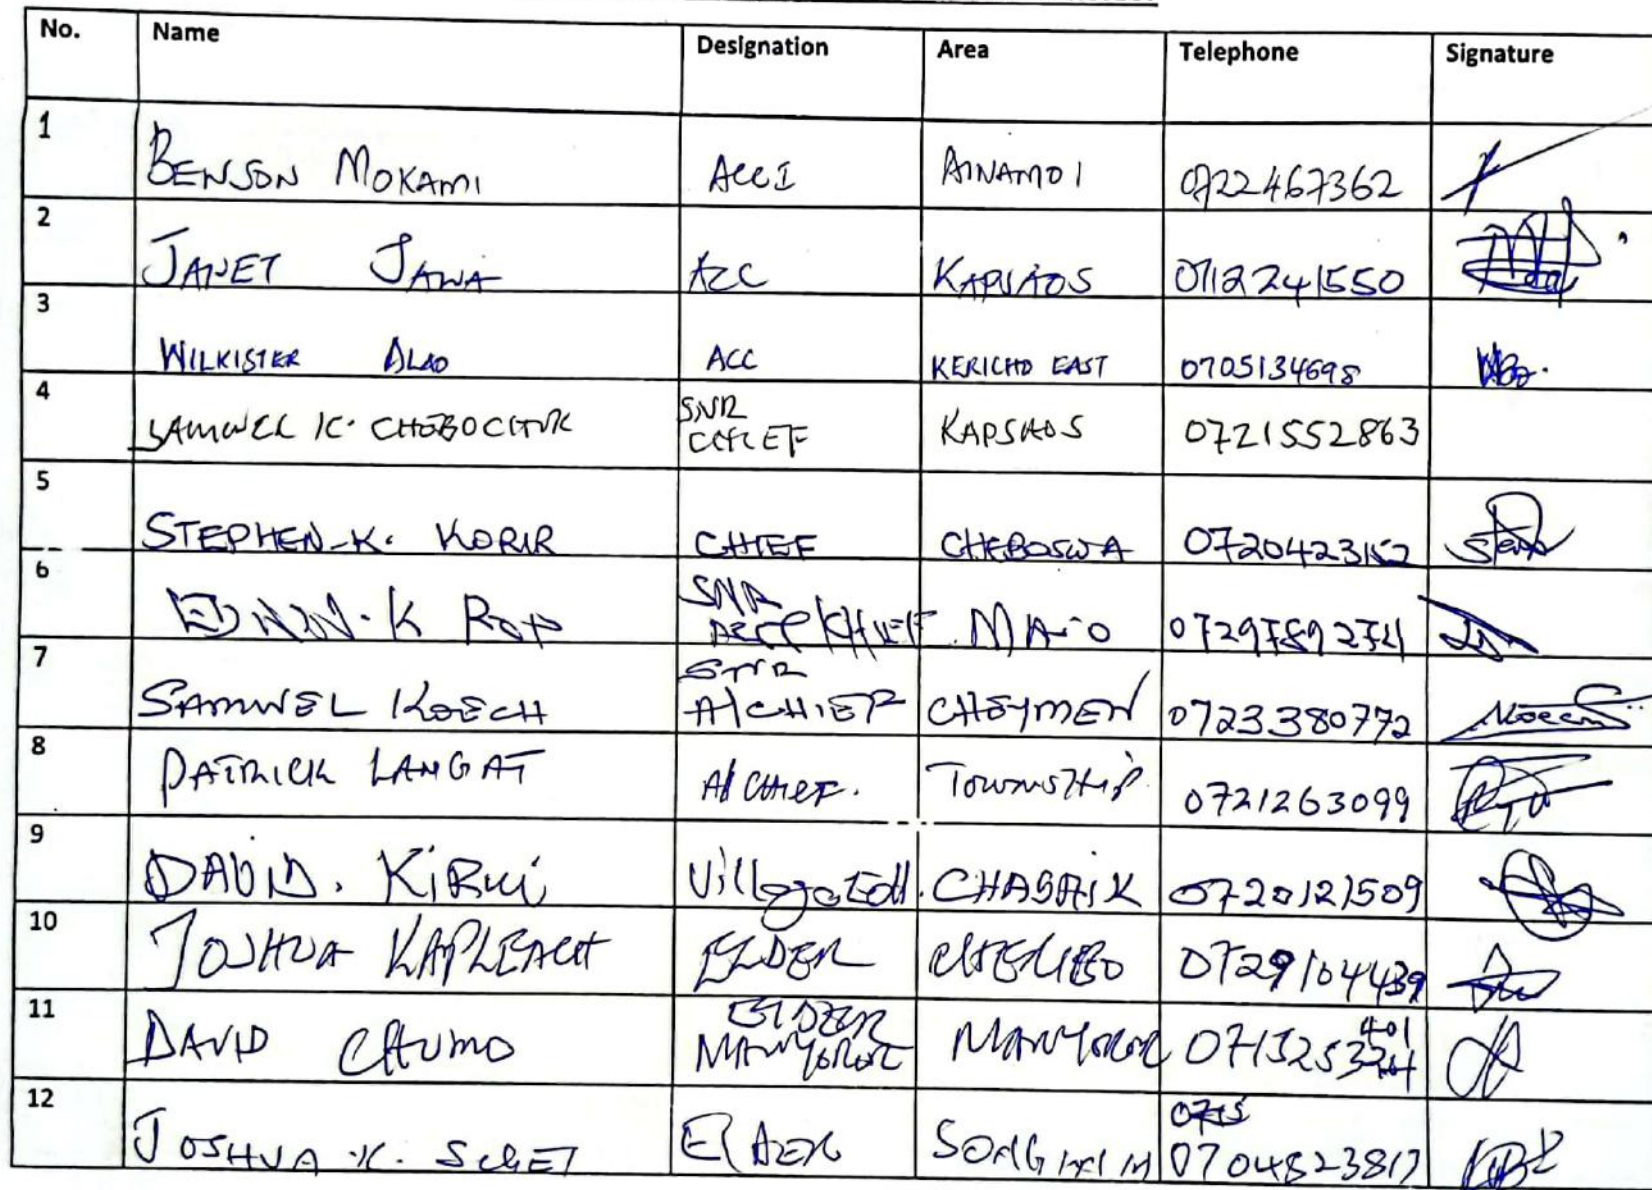 No. Name Designation Area Telephone Signature
1 BENSON MOKAMI ACCI AINAMOI 0722467362
2 JANET JAWA ACC KAPSAOS 0112241550
3 WILKISTER ALAO ACC KERICHO EAST 0705134698
4 SAMWEL K. CHEBOCHOK SNR
CHIEF KAPSAOS 0721552863
5 STEPHEN K. KORIR CHIEF CHEBOSWA 0720423152
6 K ROP SNR
0729789274
7 SAMWEL KOECH SNR
A/CHIEF CHEYMEN 0723380772
8 PATRICK LANGAT A/CHIEF. TOWNSHIP 0721263099
9 DAVID. KIRUI Village Eld. CHAGAIK 0720121509
10 JOSHUA KAPLEACH ELDER 0729104439
11 DAVID CHUMO ELDER
MANYOROR MANYOROR 0713253401
12 JOSHUA K. ELDER 0715
0704823817